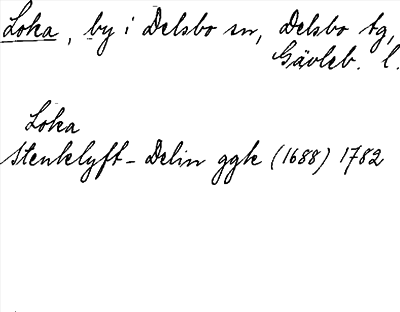 Loka, by i Delsbo sn, Delsbo tg,
Gävleb. l.
Loka
Stenklyft - Delin ggk (1688) 1782